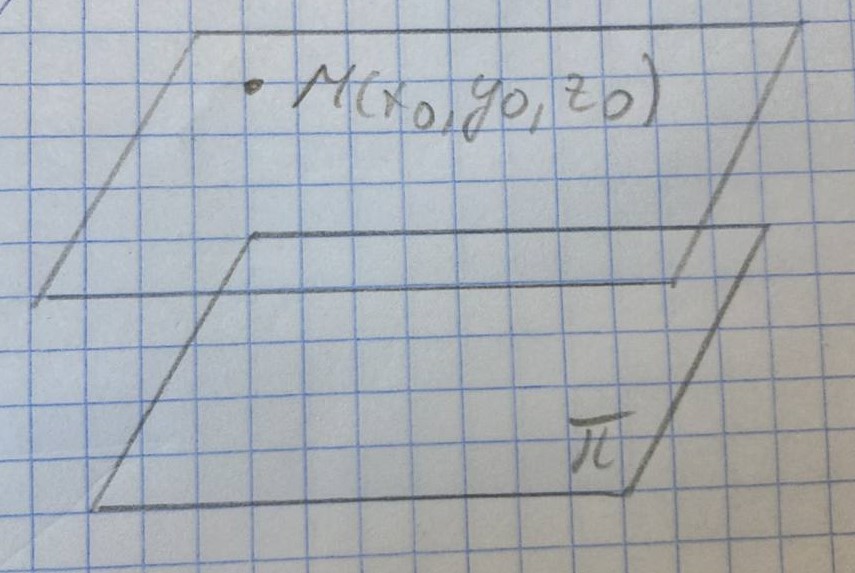 M(x₀, y₀, z₀)
π